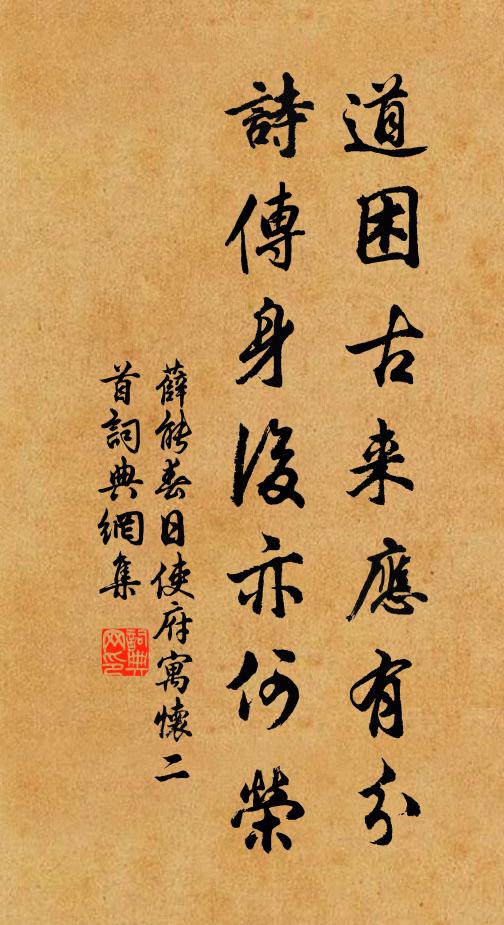 道困古来應有分
詩傳身後亦何榮
薛能春日使府寓懷二
首詞典網集
詞典
网印